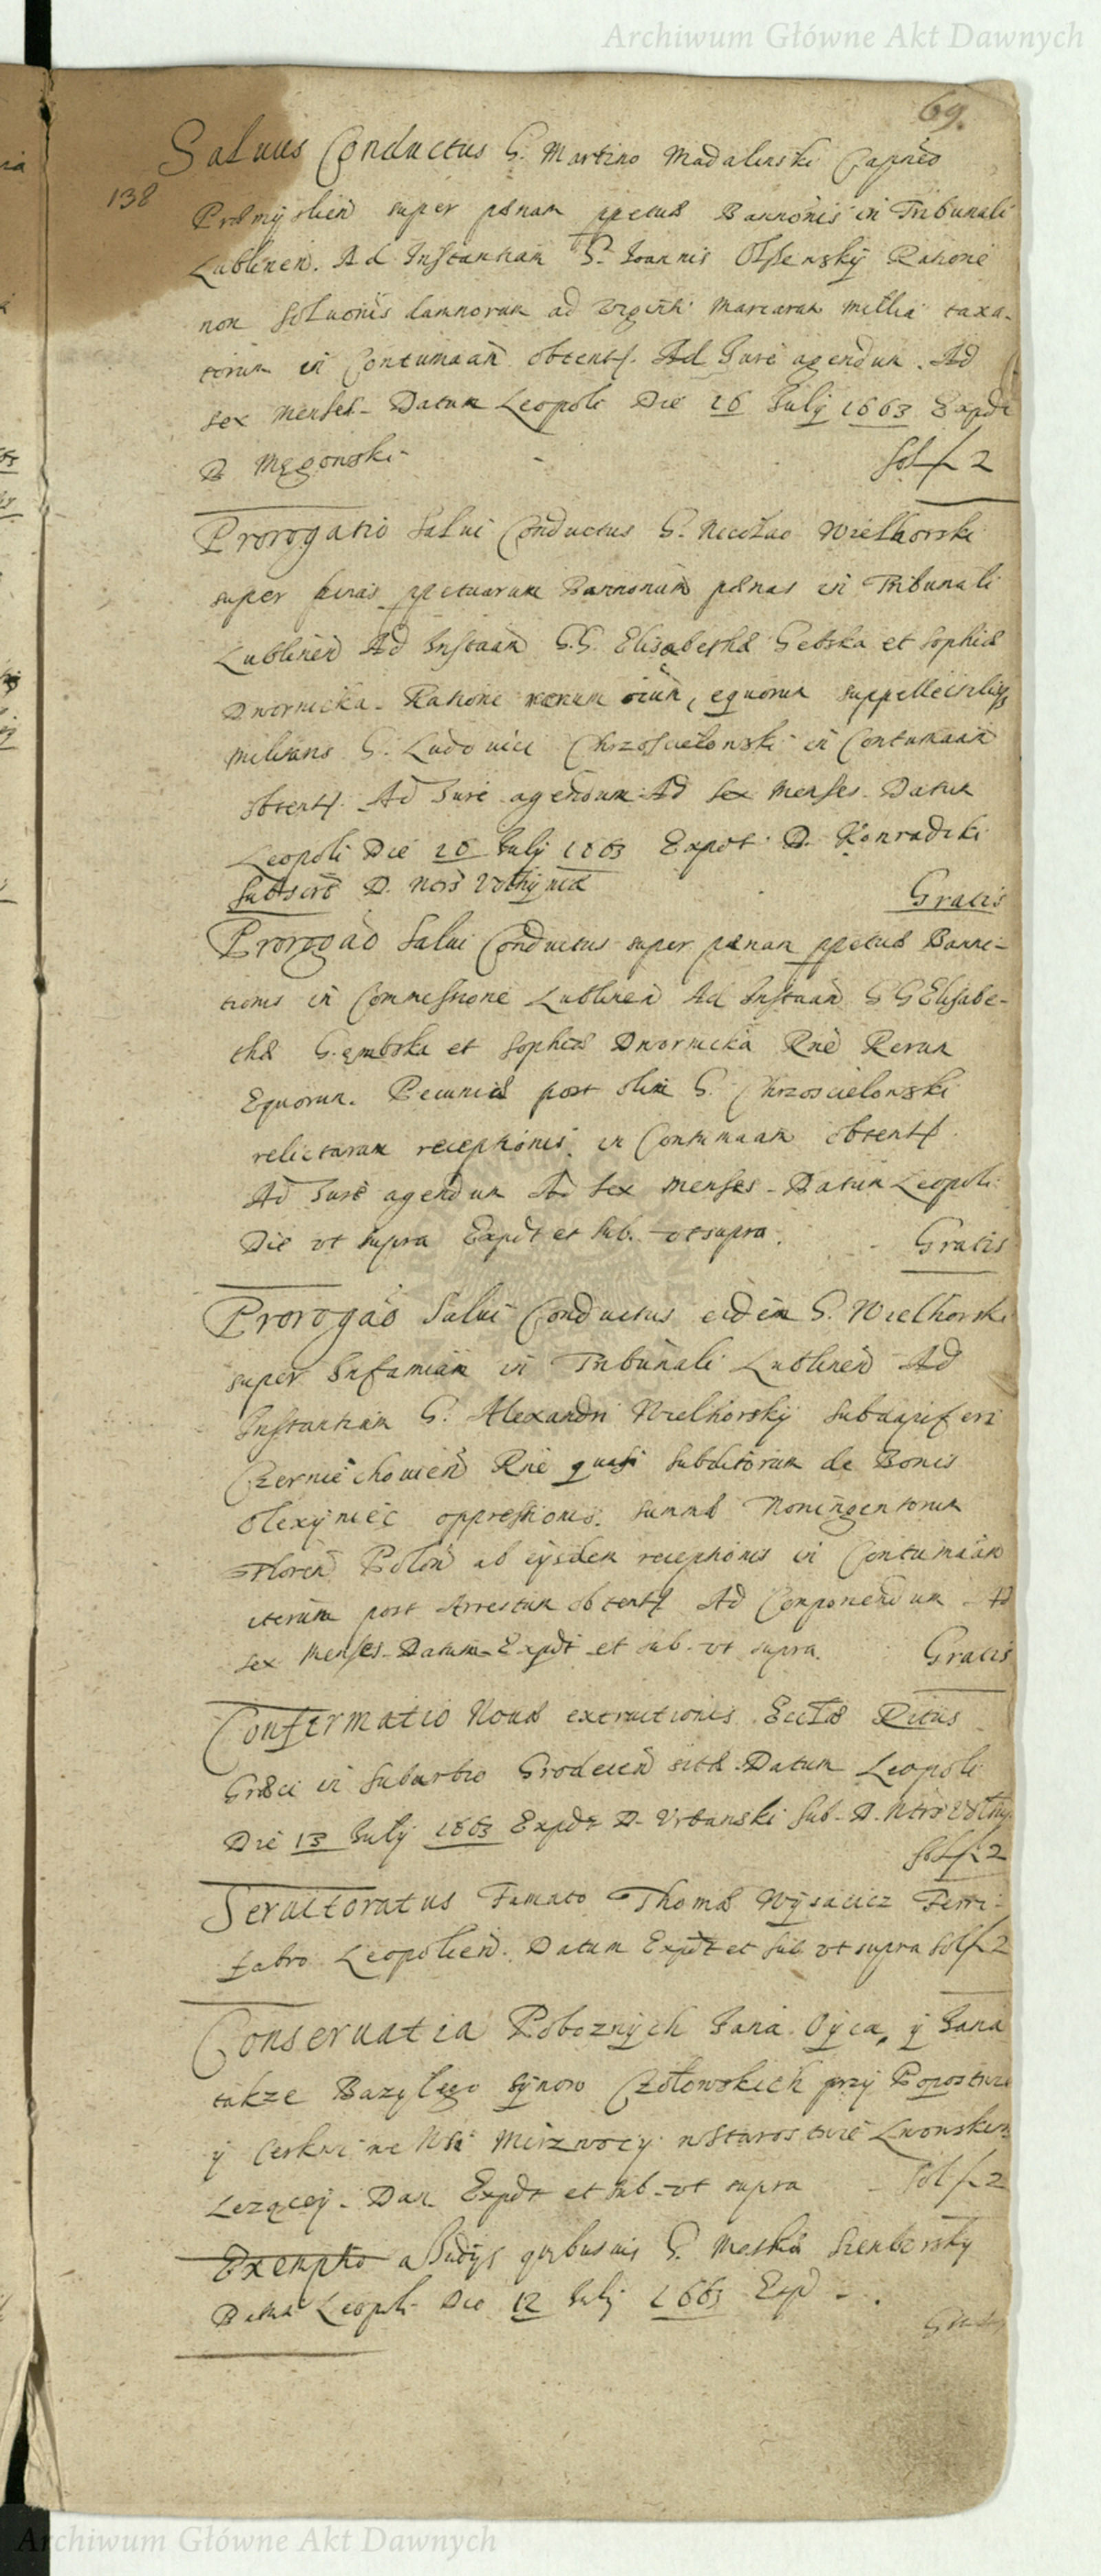 Archiwum Główne Akt Dawnych
69.
Saluus Conductus G. Martino Madalinski Capneo
138
Præmyslien super pænam ppetuæ Bannonis in Tribunali
Lublinen. Ad Instantiam G. Joannis Ratione
non soluonis damnorum ad viginti marcarum millia taxa-
torum in Contumaam obtent. Ad Jure agendum. Ad
sex menses. Datum Leopoli Die 16 July 1663 Expdt
D. Męgonski
sol f. 2
Prorogatio Salui Conductus G. Nicolao Wielhorski
super binas ppetuarum Bannonum pænas in Tribunali
Lublinen Ad Instaam G.G. Elisabethæ Gebska et Sophiæ
Dwornicka. Ratione rerum, equorum suppellectilis
militaris G. Ludouici Chrzoscielonski in Contumaam
obtent. Ad Jure agendum Ad sex menses. Datum
Leopoli Die 16 July 1663 Expdt D. Konradzki
Subscrb D. Ntrs Volhyniæ
Gratis
Prorogao Salui Conductus super pænam ppetuæ Banni-
tionis in Commissione Lublinen Ad Instaam G G Elisabe-
thæ Gembska et Sophiæ Dwornicka Rne Rerum
Equorum. Pecuniæ post olim G. Chrzoscielonski
relictarum receptionis. in Contumaam obtent.
Ad Jure agendum Ad sex menses. Datum Leopoli
Die vt supra Expdt et sub. vt supra.
Gratis
Prorogao Salui Conductus eidem G. Wielhorski
super Infamiam in Tribunali Lublinen Ad
Instantiam G. Alexandri Wielhorsky subdapiferi
Czerniechouien Rne quasi subditorum de Bonis
Olexyniec oppressionis. summæ Noningentorum
Floren Polon ab eysdem receptionis in Contumaam
iterum post Arrestum obtent Ad Componendum Ad
sex menses. Datum Expdt et sub. vt supra.
Gratis
Confirmatio Nouæ extructionis Eccłæ Ritus
Græci in suburbio Grodecen sitæ. Datum Leopoli
Die 13 July 1663 Expdt D. Vrbanski sub. D. Ntrs Volhy.
sol f. 2
Seruitoratus Famato Thomæ Wysacicz Ferri-
fabro Leopolien. Datum Expdt et sub vt supra sol f 2
Conseruatia Poboznych Jana Oyca, y Jana
takze Bazylego synow Czołowskich przy Popostwie
y Cerkwi we Wsi Mierzwocy w Starostwie Lwowskim
Lezącey. Dat. Expdt et sub. vt supra
sol f 2
Exemptio a Judys quibusuis G.
Leopoli Die 12 July 1663 Exp
Gratis
Archiwum Główne Akt Dawnych